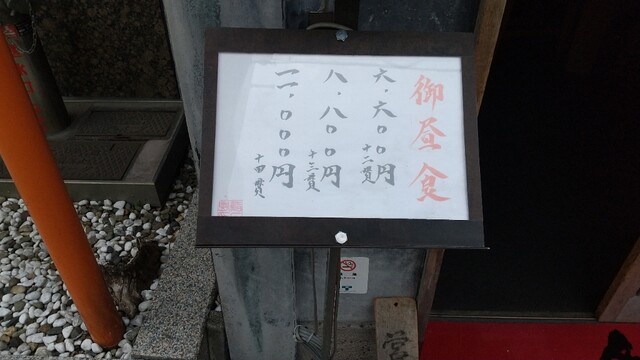 御昼食
六.六〇〇円
十二貫
八.八〇〇円
十三貫
一一.〇〇〇円
十四貫
営